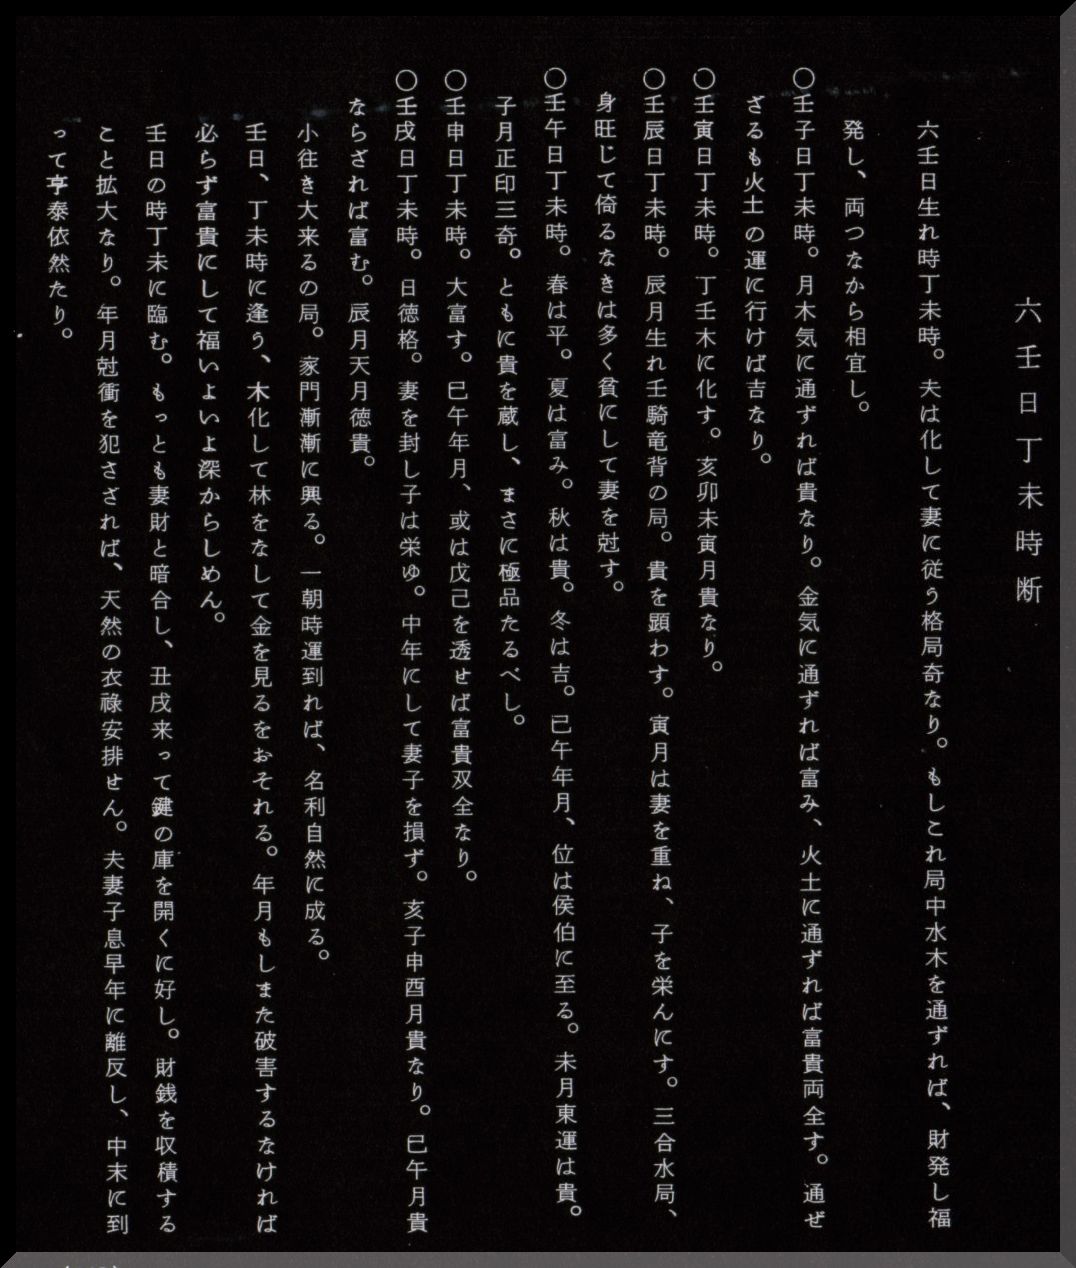 六壬日丁未時断
六壬日生れ時丁未時。夫は化して妻に従う格局奇なり。もしこれ局中水木を通ずれば、財発し福
発し、両つなから相宜し。
〇壬子日丁未時。月木気に通ずれば貴なり。金気に通ずれば富み、火土に通ずれば富貴両全す。通ぜ
ざるも火土の運に行けば吉なり。
〇壬寅日丁未時。丁壬木に化す。亥卯未寅月貴なり。
〇壬辰日丁未時。辰月生れ壬騎竜背の局。貴を顕わす。寅月は妻を重ね、子を栄んにす。三合水局、
身旺じて倚るなきは多く貧にして妻を尅す。
〇壬午日丁未時。春は平。夏は富み。秋は貴。冬は吉。已午年月、位は侯伯に至る。未月東運は貴。
子月正印三奇。ともに貴を蔵し、まさに極品たるべし。
〇壬申日丁未時。大富す。巳午年月、或は戊己を透せば富貴双全なり。
〇壬戌日丁未時。日徳格。妻を封し子は栄ゆ。中年にして妻子を損ず。亥子申酉月貴なり。巳午月貴
ならざれば富む。辰月天月徳貴。
小往き大来るの局。家門漸漸に興る。一朝時運到れば、名利自然に成る。
壬日、丁未時に逢う、木化して林をなして金を見るをおそれる。年月もしまた破害するなければ
必らず富貴にして福いよいよ深からしめん。
壬日の時丁未に臨む。もっとも妻財と暗合し、丑戌来って鍵の庫を開くに好し。財銭を収積する
こと拡大なり。年月尅衝を犯さざれば、天然の衣祿安排せん。夫妻子息早年に離反し、中末に到
って亨泰依然たり。